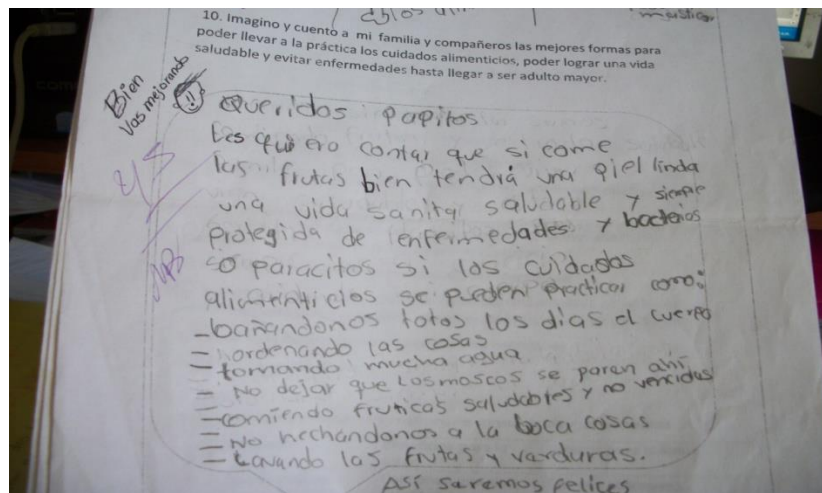 10. Imagino y cuento a mi familia y compañeros las mejores formas para
poder llevar a la práctica los cuidados alimenticios, poder lograr una vida
saludable y evitar enfermedades hasta llegar a ser adulto mayor.
Bien
Vas mejorando
Queridos papitos
Les quiero contar que si come
las frutas bien tendrá una piel linda
una vida sanita saludable y siempre
protegida de enfermedades y bacterios
o paracitos si los cuidados
se pueden practicar como:
-bañandonos totos los dias el cuerpo
- ordenando las cosas
- tomando mucha agua
- No dejar que los moscos se paren ahi
- comiendo fruticas saludables y no vencidas
- No hechandonos a la boca cosas
- Lavando las frutas y varduras.
Asi saremos felices